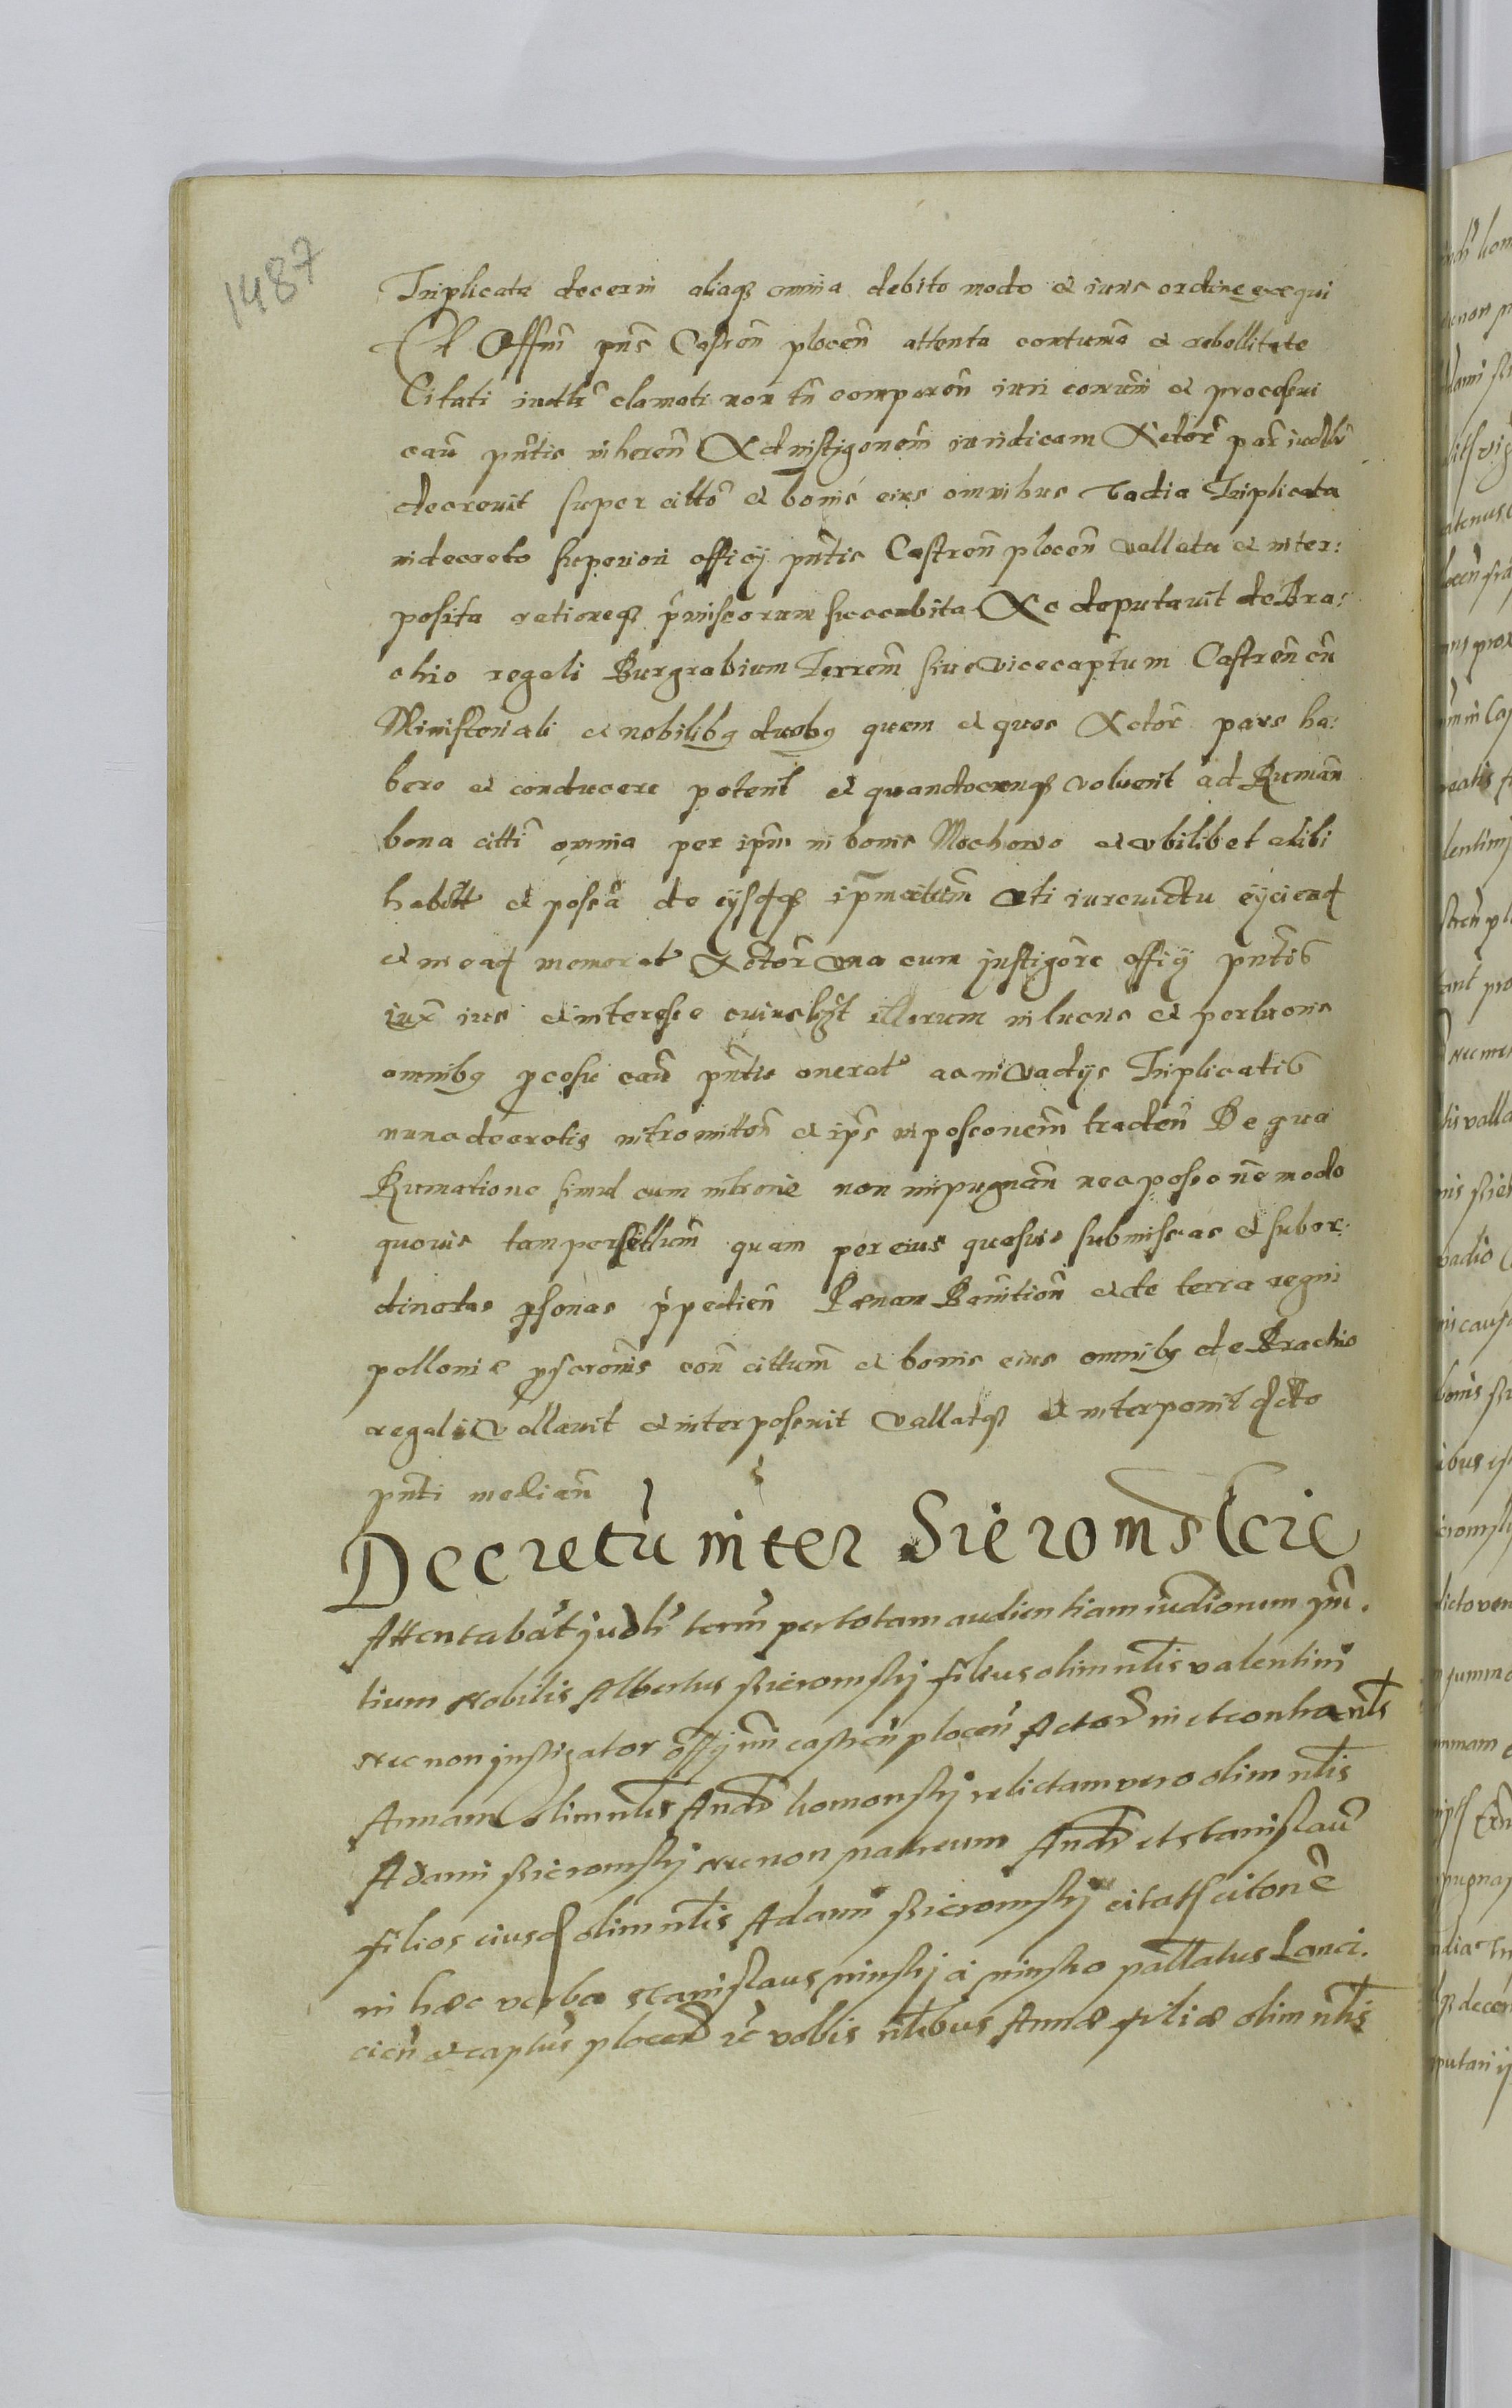 1487
Triplicata decerni aliaq₃ omnia debito modo et iuris ordine exequi
Et Offm̃ pñs Castreñ plocen̄ attenta contuma et rebellitate
Citati iudlr̃ clamati non tñ comparen̄ iuri conuñi et processui
cau͂ pñtis inheren̄ Ad instigonem̃ iuridicam Actor̃ par̃ iudlr̃
decreuit super citto et bonis eius omnibus vadia Triplicata
in decreto superiori officij pñtis Castren̄ plocen̄ vallata et inter:
posita rationeq₃ p̃missorum succubita Ac deputauit de Bra:
chio regali Burgrabium Terrem̃ siue vicecaptum Castren̄ cũ
Ministeriali et nobilibq duobq quem et quos Actor̃ pars ha:
bere et conducere poterit et quandocunq₃ voluerit ad Ruman̄
bona citti omnia per ipm̃ in bonis Mochowo et vbilibet alibi
habitt et possa de eijsdq₃ ipm̃ cittum̃ vti iurevictu eijciend
et in ead memorat Actor̃ vna cum instigore offij pñtis
iux ius et interesse cuiuslzt illorum in lucris et perlucris
omnibq pcessu cau͂ pñtis onerat ac in vadijs Triplicatis
nunc decretis intromitten̄ et ips̃ in possonem̃ traden̄ De qua
Rumatione simul cum introme non impugnan̄ nec possone modo
quouis tam per cittum̃ quam per eius quasuis submissas et subor:
dinatas psonas p̃pedien̄ Pœnam Bannition̄ et de terra regni
polloniæ pscronis con̄ cittum̃ et bonis eius omnibq de Brachio
regali vallauit et interposuit vallatq₃ et interponit dcto
pñti median̄
Decretũ inter Sieromskie
Attentabat iudlr̃ term̃ per totam audientiam iudiciorum pñ.
tium Nobilis Albertus Sieromskij filius olim nlis valentini
Nec non instigator offij mi castren̄ plocen̄ Actor̃ in et contra nls
Annam olim nlis And̃ komonskij relictam vero olim nlis
Adami Sieromskij Nec non natreum And̃ et stanislau͂
filios eiusd olim nlis Adami Sieromskij citats citone
in hæc verba Stanislaus minskj a minsko pallatus Lanci.
cien̄ et captus plocen̄ rc̃ vobis nlibus Annæ filiæ olim nlis